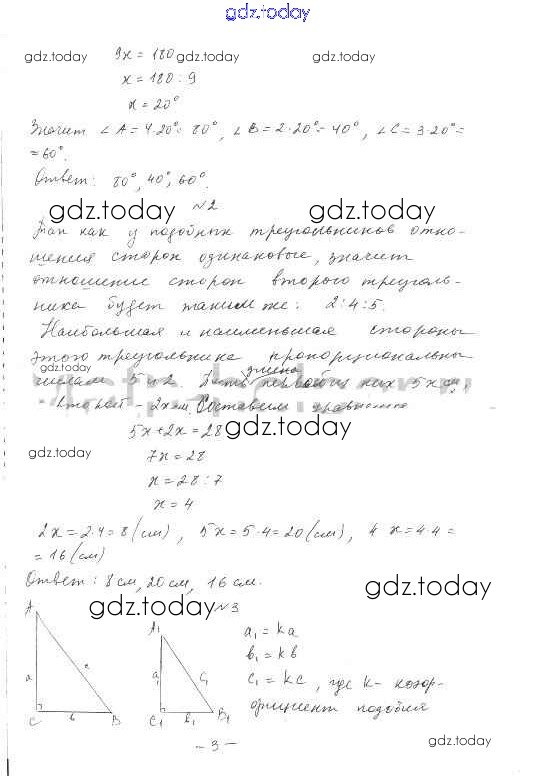 gdz.today
9x = 180
gdz.today gdz.today gdz.today
x = 180 : 9
x = 20°
Значит ∠A = 4·20° = 80°, ∠B = 2·20° = 40°, ∠C = 3·20° =
= 60°.
Ответ: 80°, 40°, 60°.
gdz.today №2 gdz.today
Так как у подобных треугольников отно-
шения сторон одинаковые, значит
отношение сторон второго треуголь-
ника будет таким же: 2:4:5.
Наибольшая и наименьшая стороны
этого треугольника пропорциональны
gdz.today
числам 5 и 2. длина первой из них 5x см,
второй 2x см. Составим уравнение
5x + 2x = 28 gdz.today
gdz.today 7x = 28
x = 28 : 7
x = 4
2x = 2·4 = 8 (см), 5x = 5·4 = 20 (см), 4x = 4·4 =
= 16 (см)
Ответ: 8 см, 20 см, 16 см.
gdz.today
gdz.today №3
A a c C b B
A₁ a₁ c₁ C₁ b₁ B₁
a₁ = ka
b₁ = kb
c₁ = kc, где k - коэф-
фициент подобия
- 3 -
gdz.today